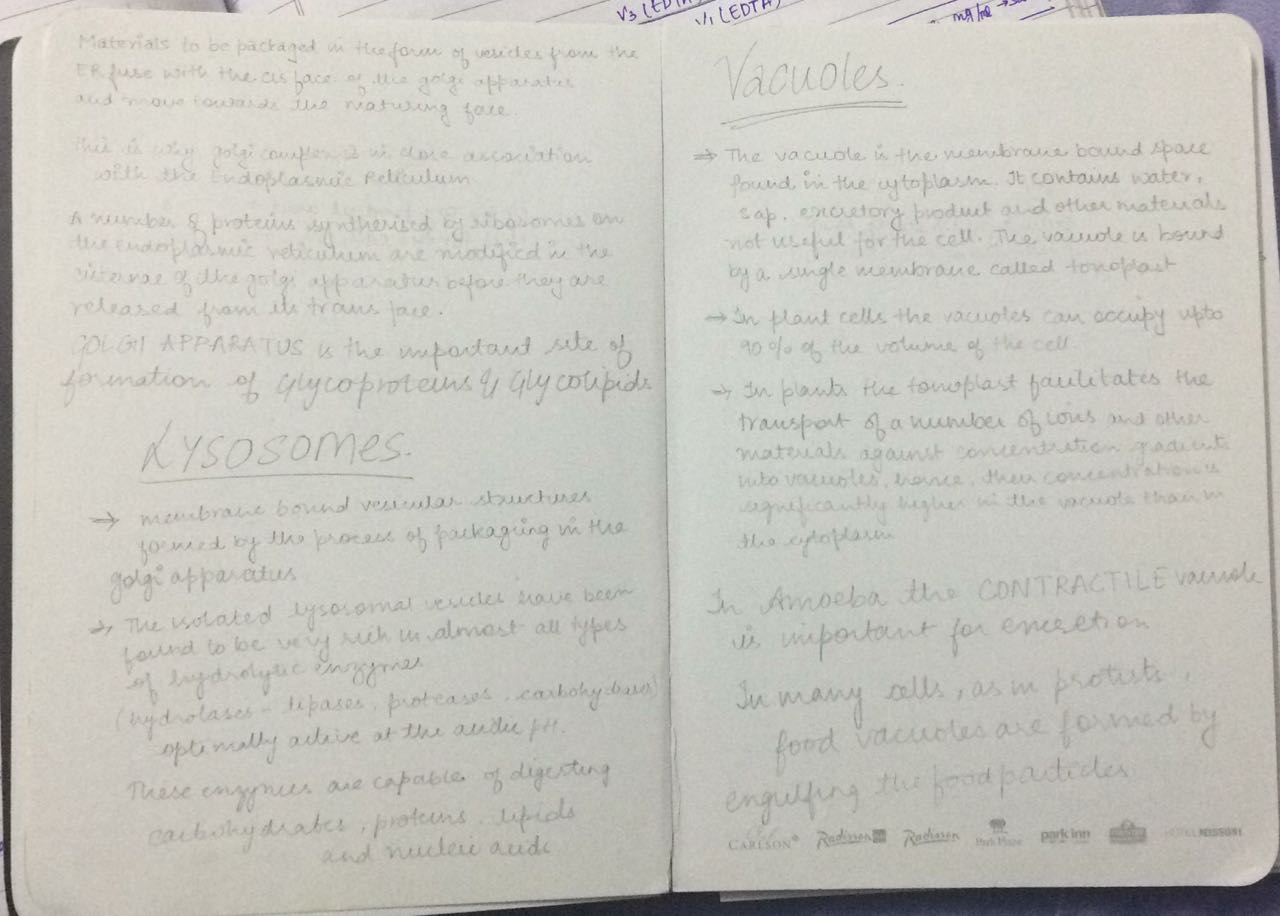 V3 (EDTA)
V1 (EDTA)
Materials to be packaged in the form of vesicles from the
ER fuse with the cis face of the golgi apparatus
and move towards the maturing face.
This is why golgi complex is in close association
with the Endoplasmic Reticulum
A number of proteins synthesised by ribosomes on
the endoplasmic reticulum are modified in the
cisternae of the golgi apparatus before they are
released from its trans face.
GOLGI APPARATUS is the important site of
formation of Glycoproteins & Glycolipids
LYSOSOMES.
⇒ membrane bound vesicular structures
formed by the process of packaging in the
golgi apparatus
⇒ The isolated lysosomal vesicles have been
found to be very rich in almost all types
of hydrolytic enzymes
(hydrolases - lipases, proteases, carbohydrases)
optimally active at the acidic pH.
These enzymes are capable of digesting
carbohydrates, proteins, lipids
and nucleic acids
Vacuoles.
⇒ The vacuole is the membrane bound space
found in the cytoplasm. It contains water,
sap, excretory product and other materials
not useful for the cell. The vacuole is bound
by a single membrane called tonoplast
→ In plant cells the vacuoles can occupy upto
90% of the volume of the cell
→ In plants the tonoplast facilitates the
transport of a number of ions and other
materials against concentration gradients
into vacuoles, hence, their concentration is
significantly higher in the vacuole than in
the cytoplasm
In Amoeba the CONTRACTILE vacuole
is important for excretion
In many cells, as in protists,
food vacuoles are formed by
engulfing the food particles
CARLSON Radisson Radisson Park Plaza park inn HOTEL MISSONI